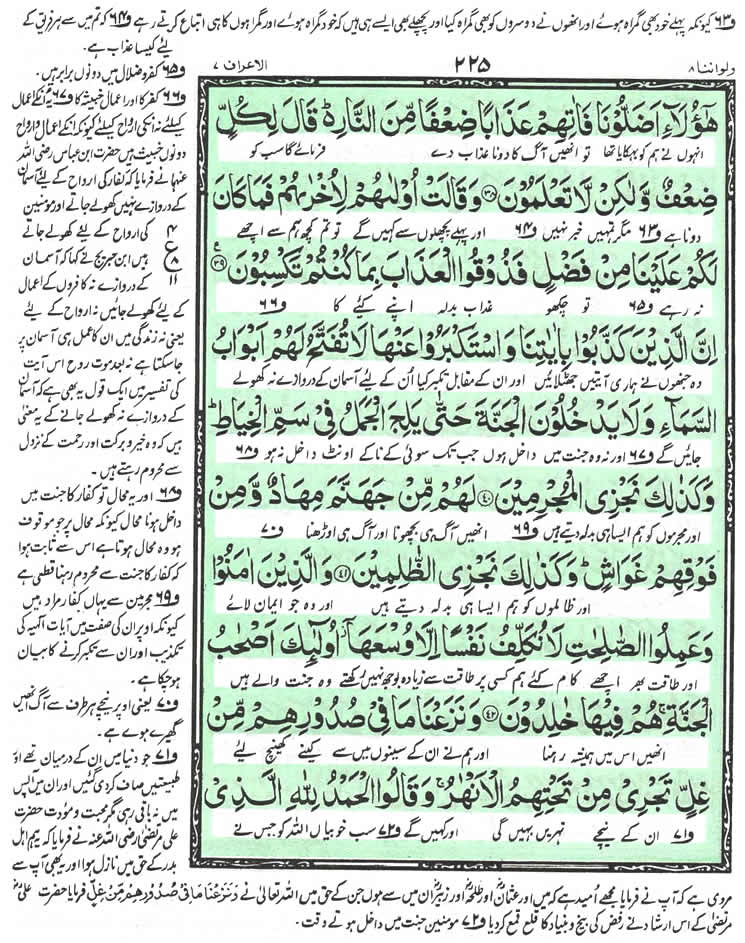 و۶۳ کیونکہ پہلے خود بھی گمراہ ہوئے اور انھوں نے دوسروں کو بھی گمراہ کیا اور پچھلے بھی ایسے ہی ہیں کہ خود گمراہ ہوئے اور گمراہوں کا ہی اتباع کرتے رہے و۶۴ کہ تم میں سے ہر فریق کے
لئے کیسا عذاب ہے۔
ولواننا ۸
۲۲۵
الاعراف ۷
هٰۤؤُلَآءِ اَضَلُّوْنَا فَاٰتِهِمْ عَذَابًا ضِعْفًا مِّنَ النَّارِ ۬ؕ قَالَ لِكُلٍّ
انہوں نے ہم کو بہکایا تھا تو انھیں آگ کا دونا عذاب دے فرمائے گا سب کو
ضِعْفٌ وَّلٰكِنْ لَّا تَعْلَمُوْنَ ۝۳۸ وَقَالَتْ اُوْلٰىهُمْ لِاُخْرٰىهُمْ فَمَا كَانَ
دونا ہے و۶۳ مگر تمہیں خبر نہیں و۶۴ اور پہلے پچھلوں سے کہیں گے تو تم کچھ ہم سے اچھے
لَكُمْ عَلَيْنَا مِنْ فَضْلٍ فَذُوْقُوا الْعَذَابَ بِمَا كُنْتُمْ تَكْسِبُوْنَ ۝۳۹ ع
نہ رہے و۶۵ تو چکھو عذاب بدلہ اپنے کئے کا و۶۶
اِنَّ الَّذِيْنَ كَذَّبُوْا بِاٰيٰتِنَا وَاسْتَكْبَرُوْا عَنْهَا لَا تُفَتَّحُ لَهُمْ اَبْوَابُ
وہ جنھوں نے ہماری آیتیں جھٹلائیں اور ان کے مقابل تکبر کیا اُن کے لئے آسمان کے دروازے نہ کھولے
السَّمَآءِ وَلَا يَدْخُلُوْنَ الْجَنَّةَ حَتّٰى يَلِجَ الْجَمَلُ فِيْ سَمِّ الْخِيَاطِ ؕ
جائیں گے و۶۷ اور نہ وہ جنت میں داخل ہوں جب تک سوئی کے ناکے اونٹ داخل نہ ہو و۶۸
وَكَذٰلِكَ نَجْزِى الْمُجْرِمِيْنَ ۝۴۰ لَهُمْ مِّنْ جَهَنَّمَ مِهَادٌ وَّمِنْ
اور مجرموں کو ہم ایسا ہی بدلہ دیتے ہیں و۶۹ انھیں آگ ہی بچھونا اور آگ ہی اوڑھنا و۷۰
فَوْقِهِمْ غَوَاشٍ ؕ وَكَذٰلِكَ نَجْزِى الظّٰلِمِيْنَ ۝۴۱ وَالَّذِيْنَ اٰمَنُوْا
اور ظالموں کو ہم ایسا ہی بدلہ دیتے ہیں اور وہ جو ایمان لائے
وَعَمِلُوا الصّٰلِحٰتِ لَا نُكَلِّفُ نَفْسًا اِلَّا وُسْعَهَاۤ ؗ اُولٰٓئِكَ اَصْحٰبُ
اور طاقت بھر اچھے کام کئے ہم کسی پر طاقت سے زیادہ بوجھ نہیں رکھتے وہ جنت والے ہیں
الْجَنَّةِ ۚ هُمْ فِيْهَا خٰلِدُوْنَ ۝۴۲ وَنَزَعْنَا مَا فِيْ صُدُوْرِهِمْ مِّنْ
انھیں اس میں ہمیشہ رہنا اور ہم نے ان کے سینوں میں سے کینے کھینچ لیئے
غِلٍّ تَجْرِيْ مِنْ تَحْتِهِمُ الْاَنْهٰرُ ۚ وَقَالُوا الْحَمْدُ لِلّٰهِ الَّذِيْ
و۷۱ ان کے نیچے نہریں بہیں گی اور کہیں گے و۷۲ سب خوبیاں اللہ کو جس نے
و۶۵ کفر و ضلال میں دونوں برابر ہیں۔
و۶۶ کفر کا اور اعمال خبیثہ کا و۶۷ نہ انکے اعمال
کیلئے نہ انکی ارواح کیلئے کیونکہ انکے اعمال و ارواح
دونوں خبیث ہیں حضرت ابن عباس رضی اللہ
عنہما نے فرمایا کہ کفار کی ارواح کے لئے آسمان
کے دروازے نہیں کھولے جاتے اور مؤمنین
کی ارواح کے لئے کھولے جاتے
ہیں ابن جریج نے کہا کہ آسمان
کے دروازے نہ کافروں کے اعمال
کے لئے کھولے جائیں نہ ارواح کے لئے
یعنی نہ زندگی میں ان کا عمل ہی آسمان پر
جا سکتا ہے نہ بعد موت روح اس آیت
کی تفسیر میں ایک قول یہ بھی ہے کہ آسمان
کے دروازے نہ کھولے جانے کے یہ معنیٰ
ہیں کہ وہ خیر و برکت اور رحمت کے نزول
سے محروم رہتے ہیں۔
و۶۸ اور یہ محال تو کفار کا جنت میں
داخل ہونا محال کیونکہ محال پر جو موقوف
ہو وہ محال ہوتا ہے اس سے ثابت ہوا
کہ کفار کا جنت سے محروم رہنا قطعی ہے
و۶۹ مجرمین سے یہاں کفار مراد ہیں
کیونکہ اوپر ان کی صفت میں آیات الٰہیہ کی
تکذیب اور ان سے تکبر کرنے کا بیان
ہو چکا ہے۔
و۷۰ یعنی اوپر نیچے ہر طرف سے آگ انھیں
گھیرے ہوئے ہے۔
و۷۱ جو دنیا میں ان کے درمیان تھے اور
طبیعتیں صاف کر دی گئیں اور ان میں آپس
میں نہ باقی رہی مگر محبت و مودت حضرت
علی مرتضیٰ رضی اللہ عنہ نے فرمایا کہ یہ ہم اہل
بدر کے حق میں نازل ہوا اور یہ بھی آپ سے
۴
ع
۸
۱۱
مروی ہے کہ آپ نے فرمایا مجھے اُمید ہے کہ میں اور عثمان اور طلحہ اور زبیر ان میں سے ہوں جن کے حق میں اللہ تعالیٰ نے وَنَزَعْنَا مَا فِيْ صُدُوْرِهِمْ مِّنْ غِلٍّ فرمایا حضرت علی
مرتضیٰ کے اس ارشاد نے رفض کی بیخ و بنیاد کا قلع قمع کر دیا و۷۲ مؤمنین جنت میں داخل ہوتے وقت۔